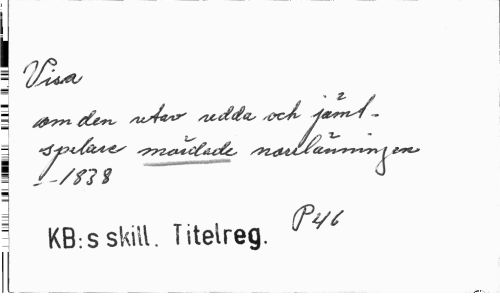 Visa
om den utav redda och jämt-
spelare mördade norrlänningen
- - 1838
P 46
KB:s skill. Titelreg.